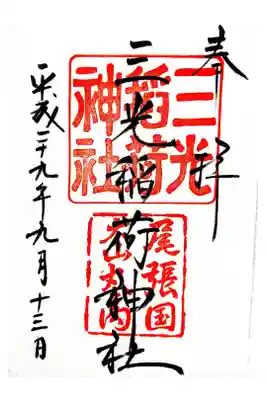 奉拝
三光稲荷神社
三光稲荷神社
尾張国
平成二十九年九月十三日